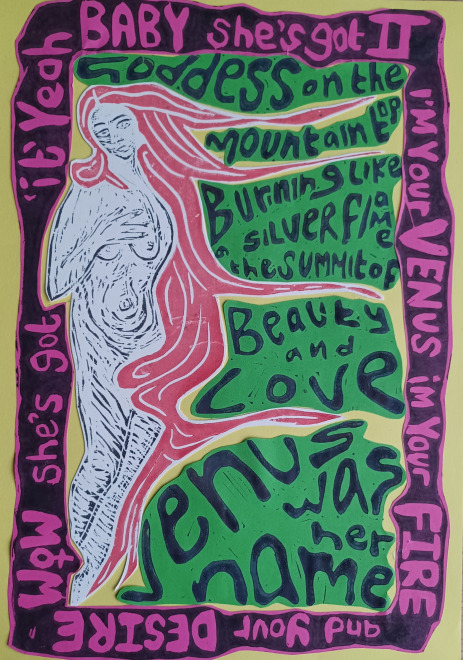 WOW she's got it Yeah
BABY she's got IT
I'M Your VENUS im Your FIRE
and your DESIRE
Goddess on the
mountain top
Burning Like
SILVER flame
& the SUMMIT of
Beauty
and
Love
Venus
was
her
name